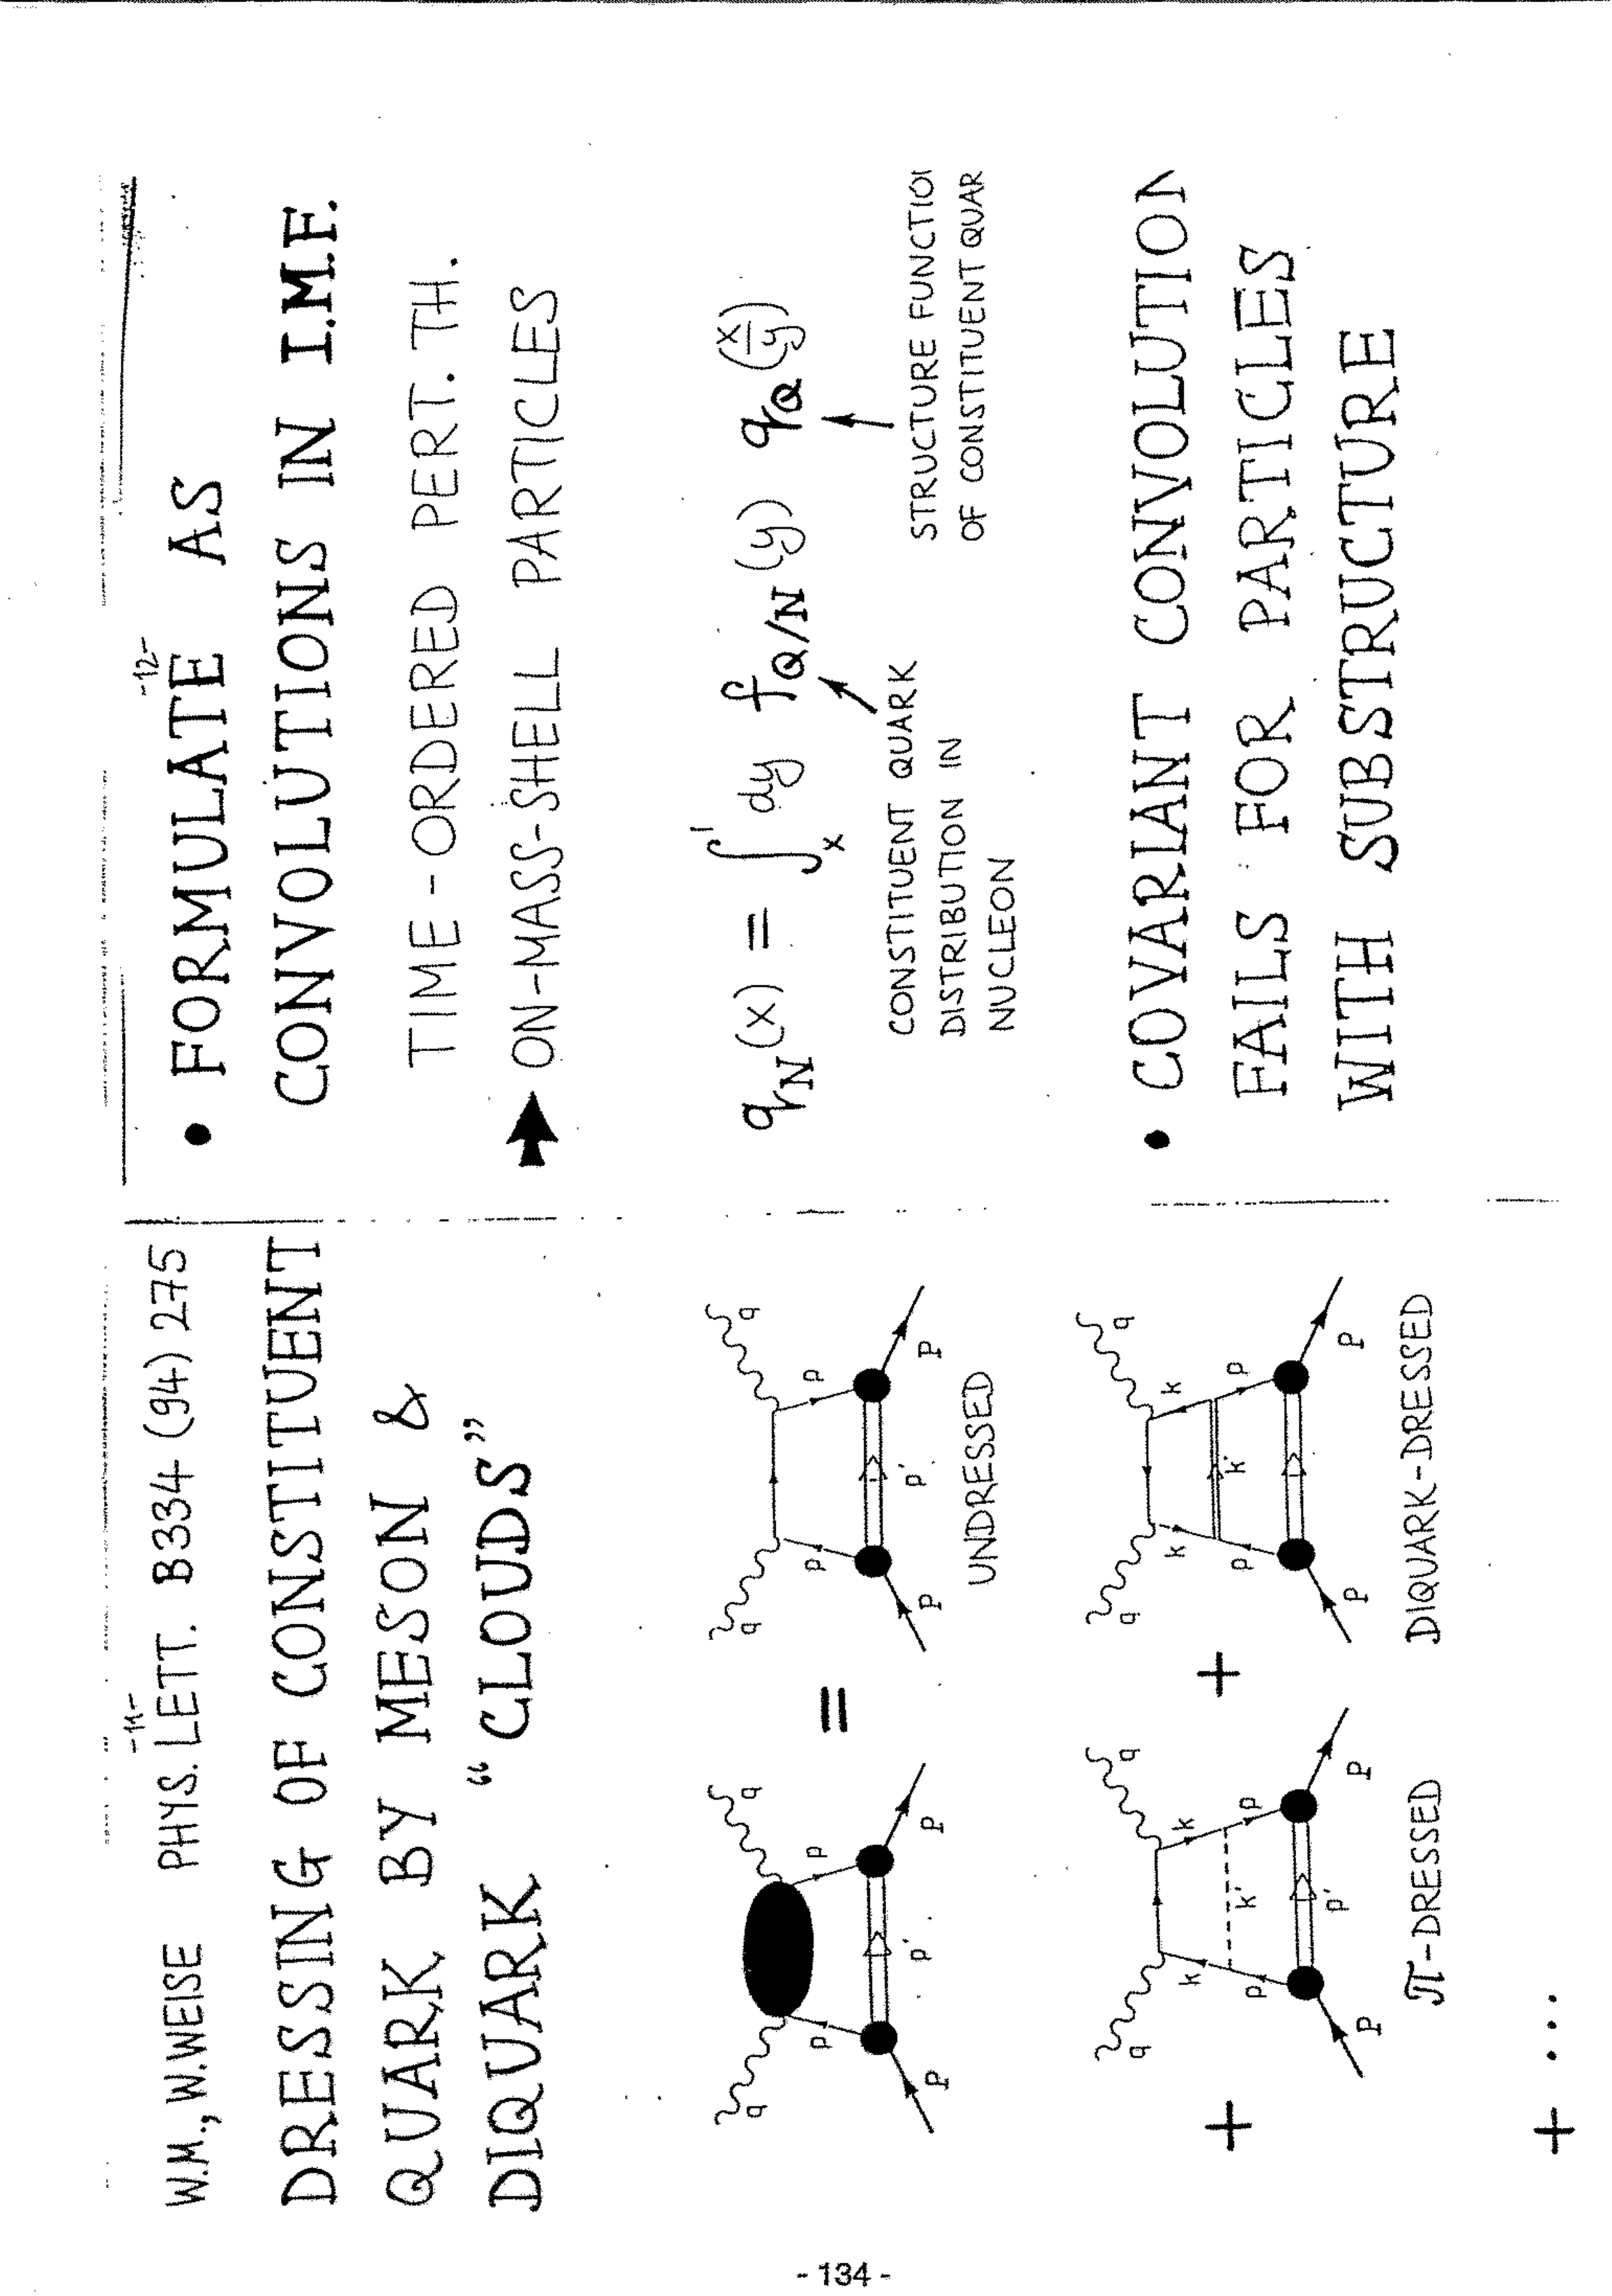 -11-
W.M., W.WEISE PHYS. LETT. B334 (94) 275
DRESSING OF CONSTITUENT
QUARK BY MESON &
DIQUARK “CLOUDS”
q q
p p
P p' P
=
q q
p p
P p' P
UNDRESSED
+
q q
k k
k'
p p
P p' P
π-DRESSED
+
q q
k k
k'
p p
P P
DIQUARK-DRESSED
+ ...
-12-
• FORMULATE AS
CONVOLUTIONS IN I.M.F.
TIME-ORDERED PERT. TH.
ON-MASS-SHELL PARTICLES
q_N(x) = ∫_x^1 dy f_{Q/N}(y) q_Q(x/y)
CONSTITUENT QUARK
DISTRIBUTION IN
NUCLEON
STRUCTURE FUNCTION
OF CONSTITUENT QUAR
• COVARIANT CONVOLUTION
FAILS FOR PARTICLES
WITH SUBSTRUCTURE
- 134 -